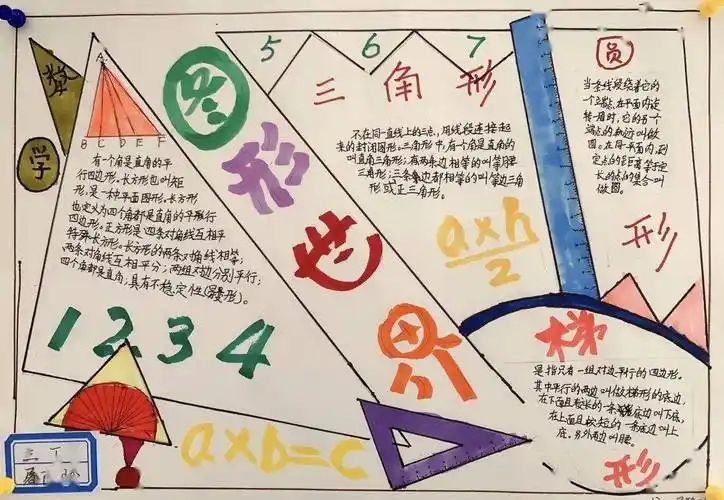 数
学
A
B C D E F
有个角是直角的平
行四边形。长方形也叫矩
形,是一种平面图形。长方形
也定义为四个角都是直角的平行
四边形。正方形是四条对角线互相平
特殊长方形。长方形的两条对角线相等;
两条对角线互相平分;两组对边分别平行;
四个角都是直角,具有不稳定性(易变形)。
1 2 3 4
图
形
世
界
a×b=c
5 6 7
三角形
不在同一直线上的三点,用线段连接起
来的封闭图形。三角形中,有个角是直角的
叫直角三角形;有两条边相等的叫等腰
三角形;三条边都相等的叫等边三角
形或正三角形。
a×h
2
圆
当条线段绕着它的
一个端点,在平面内旋
转一周时,它的另一个
端点的轨迹叫做
圆。在同一平面内,到
定点的距离等于定
长的点的集合叫
做圆。
形
梯
是指只有一组对边平行的四边形。
其中平行的两边叫做梯形的底边,
在下面且较长的一条底边叫下底,
在上面且较短的一条底边叫上
底,另外两边叫腰。
形